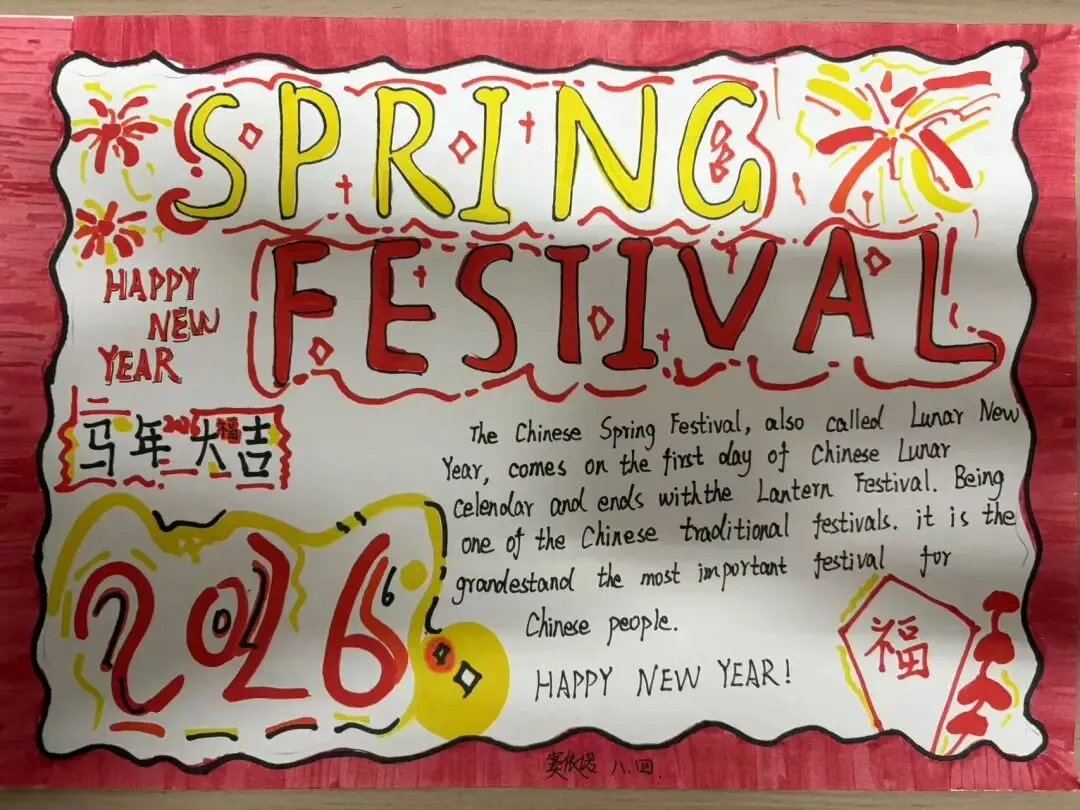 SPRING
FESTIVAL
HAPPY
NEW
YEAR
马年2026大福吉
The Chinese Spring Festival, also called Lunar New
Year, comes on the first day of Chinese Lunar
celendar and ends withthe Lantern Festival. Being
one of the Chinese traditional festivals. it is the
grandestand the most important festival for
Chinese people.
HAPPY NEW YEAR!
2026
福
窦依诺 八.四.